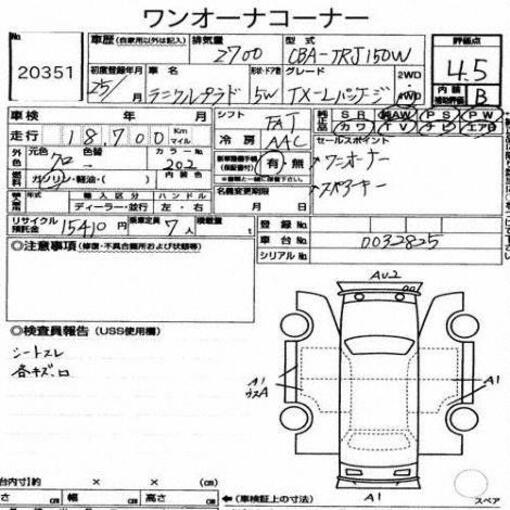 ワンオーナーコーナー
No. 20351
車歴 (自家用以外は記入) 排気量 2700 型式 CBA-TRJ150W
評価点 4.5
初度登録年月 25/ 月 車名 形状・ドア数 5W グレード TX-Lパッケージ 2WD 4WD
内装 補助評価 B
車検 年 月
シフト FAT
純正品 SR AW PS PW
カワ TV ナビ エアB
走行 18,700 Km マイル
冷房 AAC
セールスポイント
外色 元色 クロ 色替 カラーNo. 202
新車整備手帳 (保証書付) 有・無
ワンオーナー
燃料 ガソリン・軽油・( ) 内装色
スペアキー
輸入車 輸入区分 ハンドル
ディーラー・並行 左・右
名義変更期限
月 日
リサイクル預託金 15410 円 乗車定員 7 人 積載量
登録No.
車台No. 0032825
シリアルNo.
◎注意事項 (修復・不具合箇所および状態等)
◎検査員報告 (USS使用欄)
シートスレ
各キズ・凹
AU2
A1
A1
A1
台内寸)約 × × (cm)
さ 幅 高さ (cm)
(車検証上の寸法)
スペア